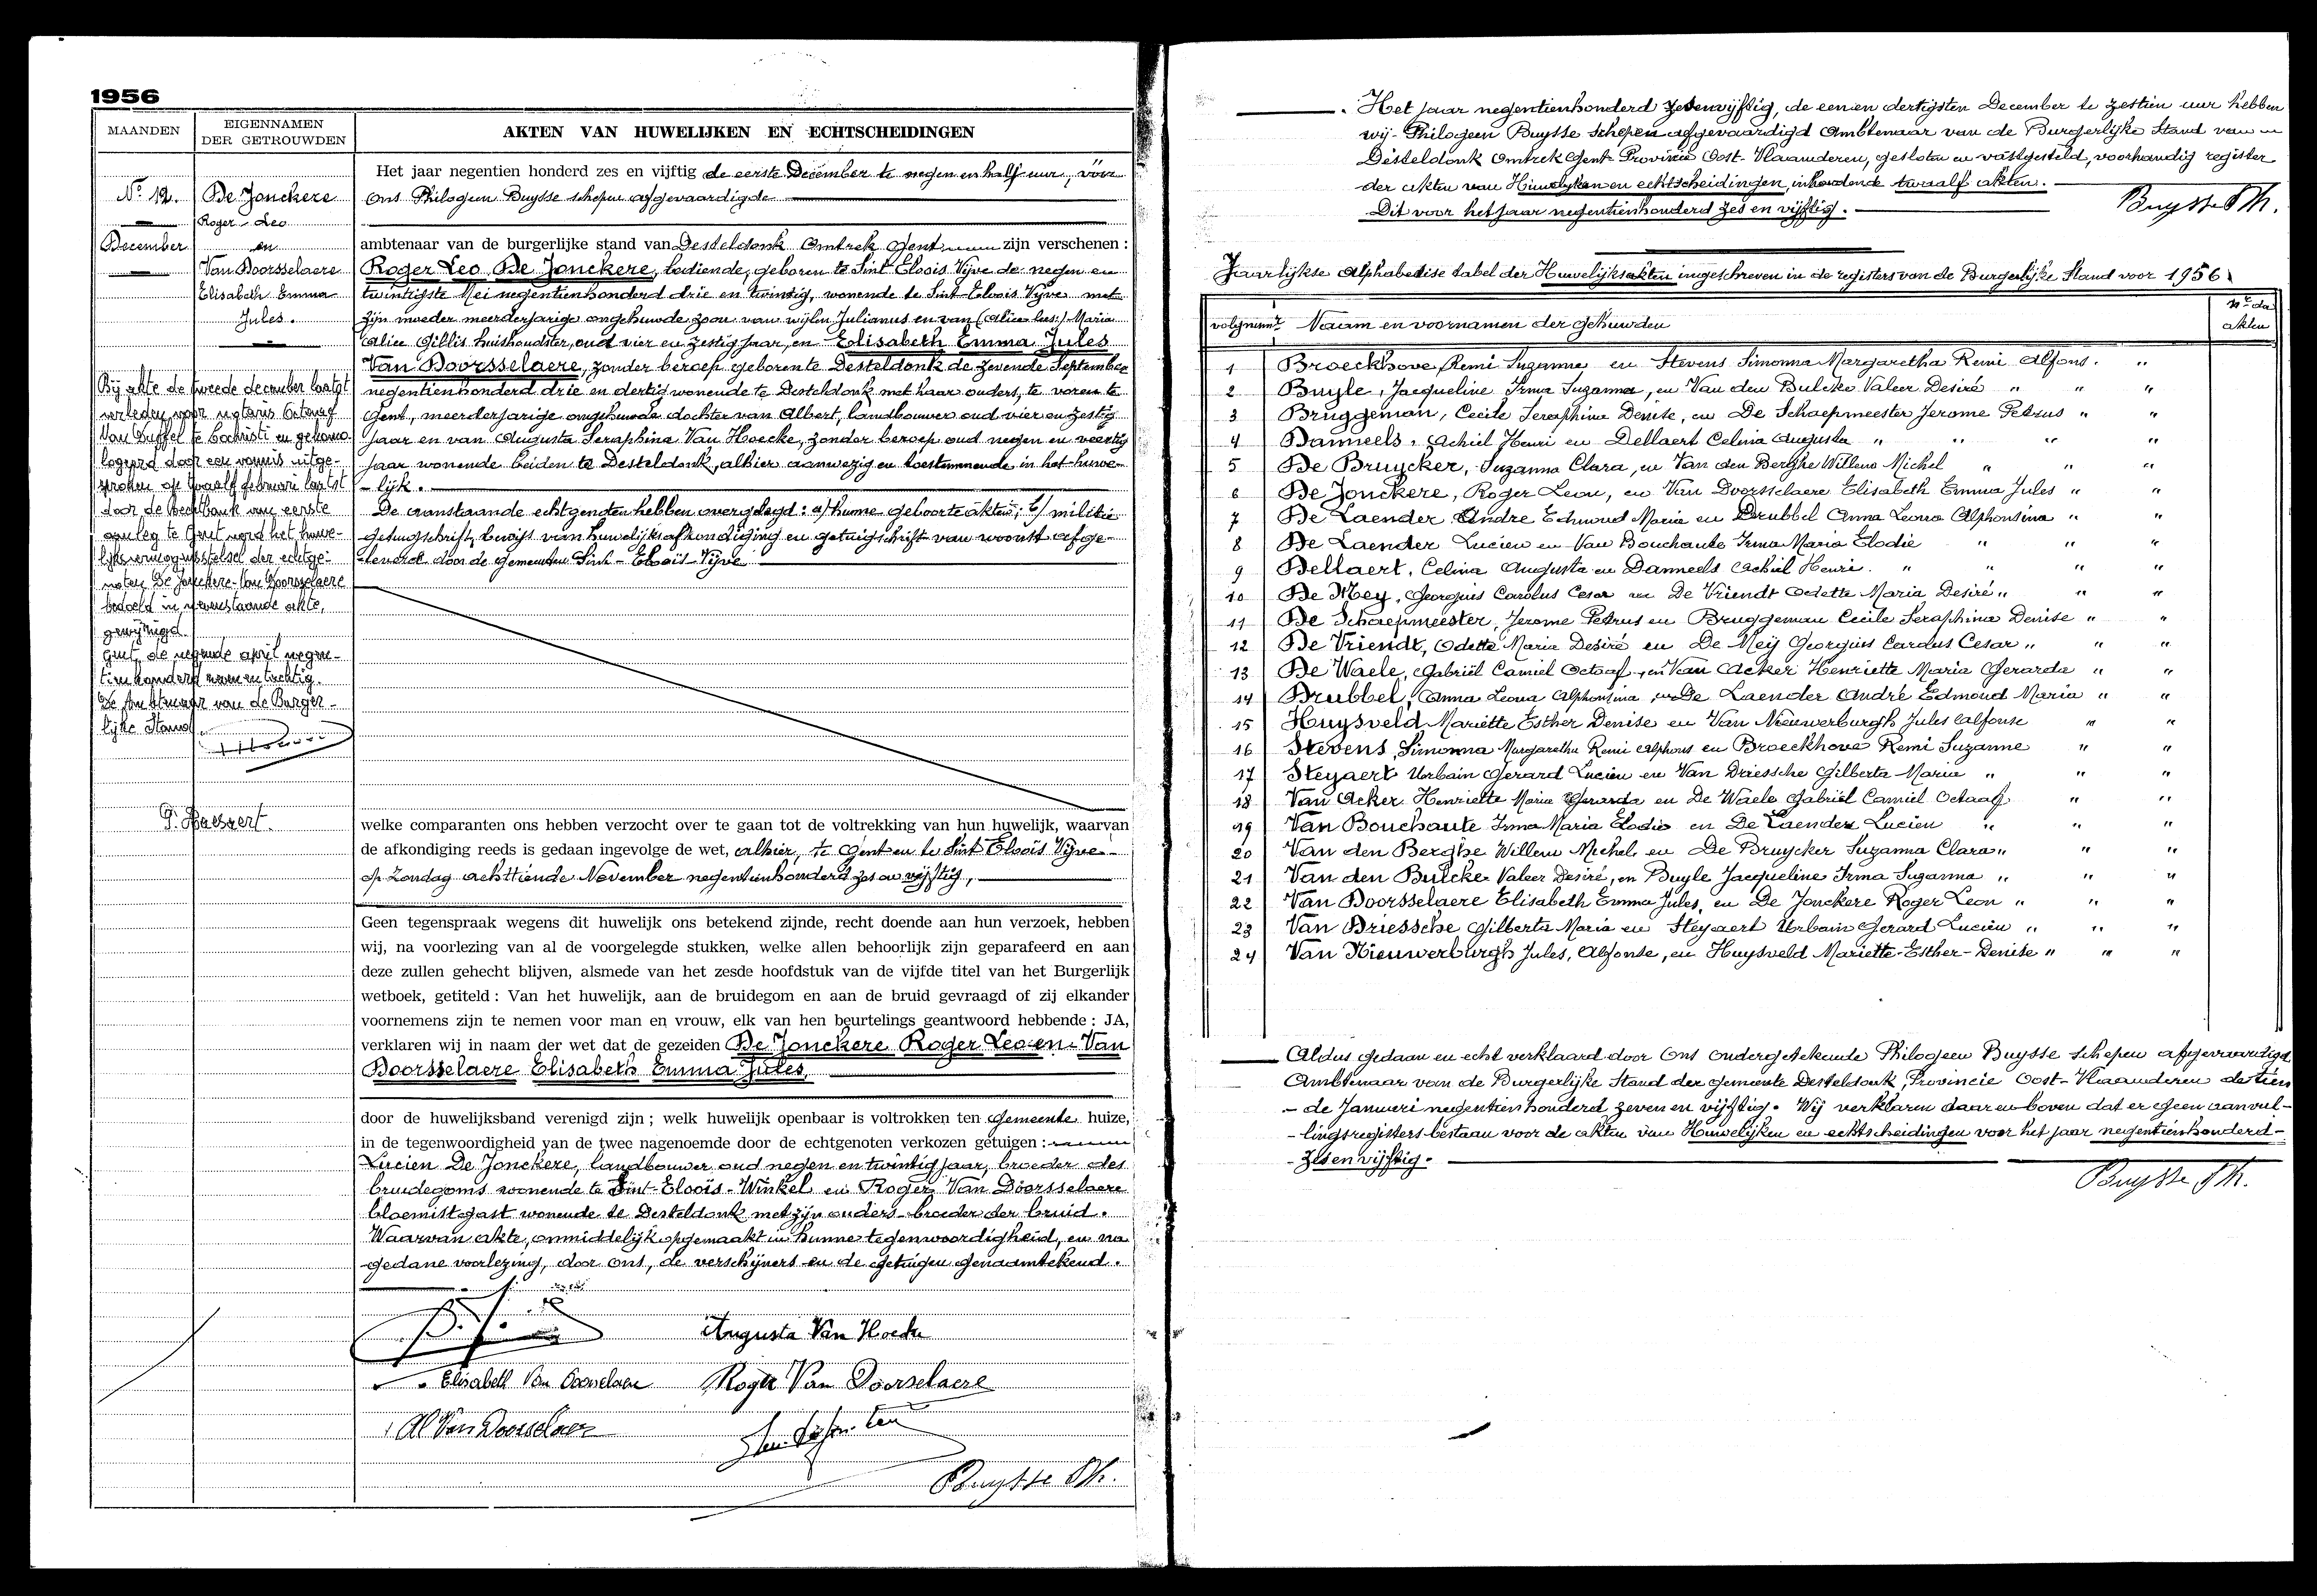 1956
MAANDEN
EIGENNAMEN
DER GETROUWDEN
AKTEN VAN HUWELIJKEN EN ECHTSCHEIDINGEN
Nº 12.
December
De Jonckere
Roger - Leo
en
Van Doorsselaere
Elisabeth Emma
Jules.
Bij akte de tweede december laatst
verleden voor notaris Octaaf
Van Duffel te Lochristi en gehomo-
logeerd door een vonnis uitge-
sproken op twaalf februari laatst
door de Rechtbank van eerste
aanleg te Gent werd het huwe-
lijksvermogensstelsel der echtge-
noten De Jonckere-Van Doorsselaere
bedoeld in nevenstaande akte,
gewijzigd.
Gent, de negende april negen-
tienhonderd negenentachtig.
De Ambtenaar van de Burger-
lijke Stand
Het jaar negentien honderd zes en vijftig de eerste December te negen en half uur, vóór
Ons Philogeen Buysse schepen afgevaardigde
ambtenaar van de burgerlijke stand van Desteldonk Omtrek Gent zijn verschenen :
Roger Leo De Jonckere, bediende, geboren te Sint Eloois Vijve de negen en
twintigste Mei negentienhonderd drie en twintig, wonende te Sint-Eloois Vijve met
zijn moeder meerderjarige ongehuwde zoon van wijlen Julianus en van (Alice lees:) Maria
Alice Gillis huishoudster, oud vier en zestig jaar, en Elisabeth Emma Jules
Van Doorsselaere, zonder beroep, geboren te Desteldonk de zevende September
negentienhonderd drie en dertig wonende te Desteldonk met haar ouders, te voren te
Gent, meerderjarige ongehuwde dochter van Albert, landbouwer oud vier en zestig
jaar en van Augusta Seraphina Van Hoecke, zonder beroep oud negen en veertig
jaar wonende beiden te Desteldonk, alhier aanwezig en toestemmende in het huwe-
- lijk.
De aanstaande echtgenoten hebben overgelegd: a) hunne geboorteakten; b) militie
getuigschrift, bewijs van huwelijksafkondiging en getuigschrift van woonst afge-
leverd door de gemeenten Sint - Eloois-Vijve
welke comparanten ons hebben verzocht over te gaan tot de voltrekking van hun huwelijk, waarvan
de afkondiging reeds is gedaan ingevolge de wet, alhier, te Gent en te Sint Eloois Vijve
op Zondag achttiende November negentienhonderd zes en vijftig,
Geen tegenspraak wegens dit huwelijk ons betekend zijnde, recht doende aan hun verzoek, hebben
wij, na voorlezing van al de voorgelegde stukken, welke allen behoorlijk zijn geparafeerd en aan
deze zullen gehecht blijven, alsmede van het zesde hoofdstuk van de vijfde titel van het Burgerlijk
wetboek, getiteld : Van het huwelijk, aan de bruidegom en aan de bruid gevraagd of zij elkander
voornemens zijn te nemen voor man en vrouw, elk van hen beurtelings geantwoord hebbende : JA,
verklaren wij in naam der wet dat de gezeiden De Jonckere Roger Leo en Van
Doorsselaere Elisabeth Emma Jules,
door de huwelijksband verenigd zijn ; welk huwelijk openbaar is voltrokken ten Gemeente huize,
in de tegenwoordigheid van de twee nagenoemde door de echtgenoten verkozen getuigen :
Lucien De Jonckere, landbouwer oud negen en twintig jaar, broeder des
bruidegoms wonende te Sint-Eloois-Winkel en Roger Van Doorsselaere
bloemistgast wonende te Desteldonk met zijn ouders broeder der bruid.
Waarvan akte, onmiddelijk opgemaakt in hunne tegenwoordigheid, en na
gedane voorlezing, door Ons, de verschijners en de getuigen genaamtekend.
Augusta Van Hoecke
Elisabeth Van Doorselaere Roger Van Doorselaere
Al Van Doorselaer
Buysse Ph.
. Het jaar negentienhonderd zesenvijftig, de eenen dertigsten December te zestien uur hebben
wij Philogeen Buysse Schepen afgevaardigd Ambtenaar van de Burgerlijke Stand van
Desteldonk Omtrek Gent Provincie Oost-Vlaanderen, gesloten en vastgesteld, voorhandig register
der akten van Huwelijken en echtscheidingen, inhoudende twaalf akten.
Dit voor het jaar negentienhonderd zes en vijftig.
Buysse Ph.
Jaarlijkse Alphabetise tabel der Huwelijksakten ingeschreven in de registers van de Burgerlijke Stand voor 1956
volgnumr Naam en voornamen der gehuwden Nr der akten
1 Broeckhove, Remi Suzanne en Stevens Simonna Margaretha Remi Alfons. "
2 Buyle, Jacqueline Irma Suzanna, en Van den Bulcke Valeer Desiré " " "
3 Bruggeman, Cecile Seraphina Denise, en De Schaepmeester Jerome Petrus " "
4 Danneels, Achiel Henri en Dellaert Celina Augusta " " " "
5 De Bruycker, Suzanna Clara, en Van den Berghe Willem Michel " " "
6 De Jonckere, Roger Leon, en Van Doorsselaere Elisabeth Emma Jules " "
7 De Laender Andre Edmond Maria en Drubbel Anna Leona Alphonsina " "
8 De Laender Lucien en Van Bouchaute Irma Maria Elodie " " "
9 Dellaert, Celina Augusta en Danneels Achiel Henri. " " " "
10 De Mey, Georgius Carolus Cesar en De Vriendt Odette Maria Desiré " " "
11 De Schaepmeester, Jerome Petrus en Bruggeman Cecile Seraphina Denise " "
12 De Vriendt, Odette Maria Desiré en De Meij Georgius Carolus Cesar " " "
13 De Waele, Gabriël Camiel Octaaf, en Van Acker Henriette Maria Gerarda " "
14 Drubbel, Anna Leona Alphonsina, en De Laender André Edmond Maria " "
15 Huysveld Mariette Esther Denise en Van Nieuwerburgh Jules Alfonse " "
16 Stevens, Simonna Margaretha Remi Alphons en Broeckhove Remi Suzanne " "
17 Steyaert Urbain Gerard Lucien en Van Driessche Gilberta Maria " " "
18 Van Acker Henriette Maria Gerarda en De Waele Gabriël Camiel Octaaf " "
19 Van Bouchaute Irma Maria Elodie en De Laender Lucien " " "
20 Van den Berghe Willem Michel en De Bruycker Suzanna Clara " " "
21 Van den Bulcke Valeer Desiré, en Buyle Jacqueline Irma Suzanna " " "
22 Van Doorsselaere Elisabeth Emma Jules, en De Jonckere Roger Leon " " "
23 Van Driessche Gilberta Maria en Steyaert Urbain Gerard Lucien " " "
24 Van Nieuwerburgh Jules, Alfonse, en Huysveld Mariette-Esther-Denise " " "
Aldus gedaan en echt verklaard door Ons Ondergetekende Philogeen Buysse Schepen afgevaardigd
Ambtenaar van de Burgerlijke Stand der gemeente Desteldonk, Provincie Oost-Vlaanderen de tien
- de Januari negentienhonderd zeven en vijftig. Wij verklaren daarenboven dat er geen aanvul-
- lingsregisters bestaan voor de akten van Huwelijken en echtscheidingen voor het jaar negentienhonderd-
- zesenvijftig.
Buysse Ph.